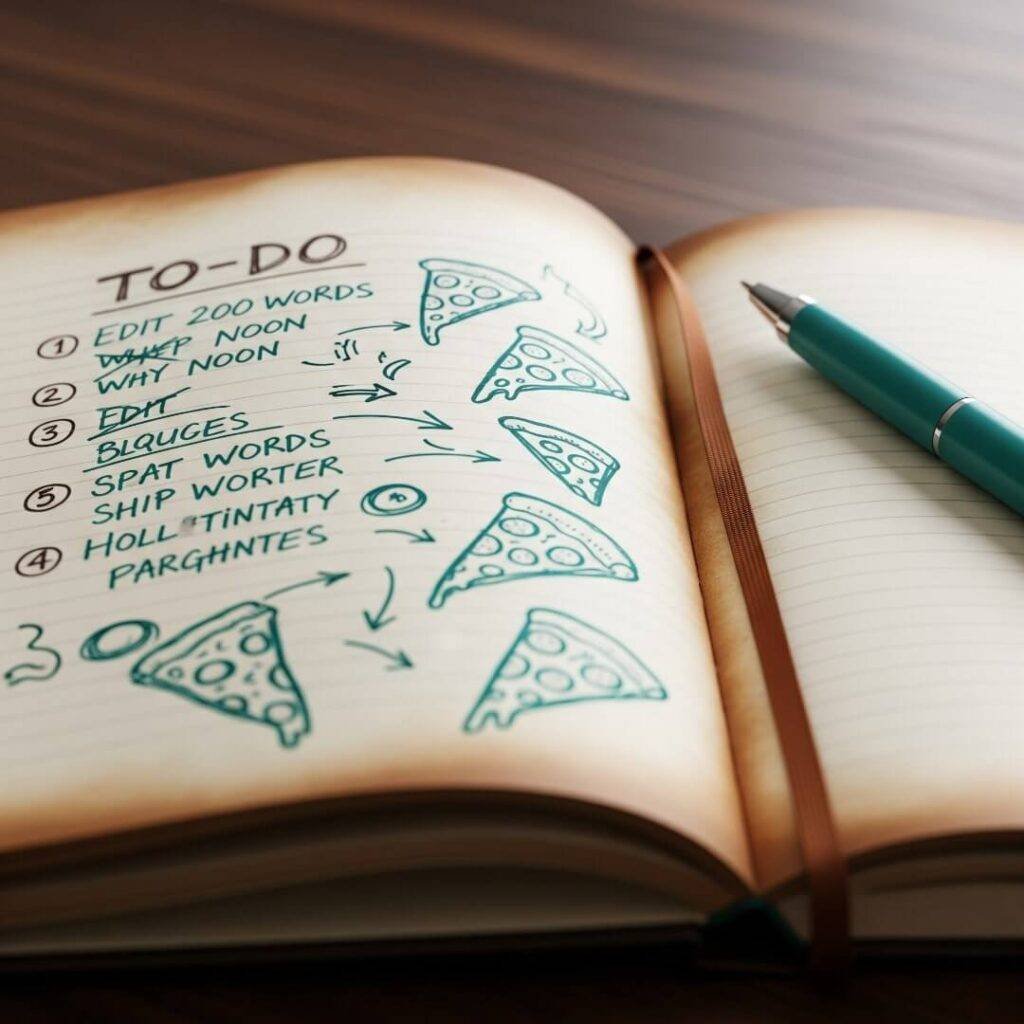 TO-DO
① EDIT 200 WORDS
NOON
② WHY NOON
③ EDIT
BLQUGES
⑤ SPAT WORDS
SHIP WORTER
④ HOLL TINTATY
PARGHNTES